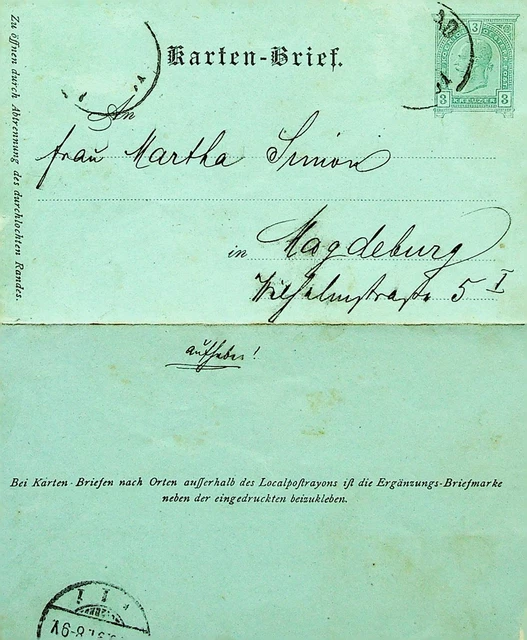 Karten-Brief.
3
3 KREUZER 3
Zu öffnen durch Abtrennung des durchlochten Randes.
An
Frau Martha Simon
in Magdeburg
Wilhelmstraße 5 I
aufheben!
Bei Karten-Briefen nach Orten außerhalb des Localpostrayons ist die Ergänzungs-Briefmarke
neben der eingedruckten beizukleben.